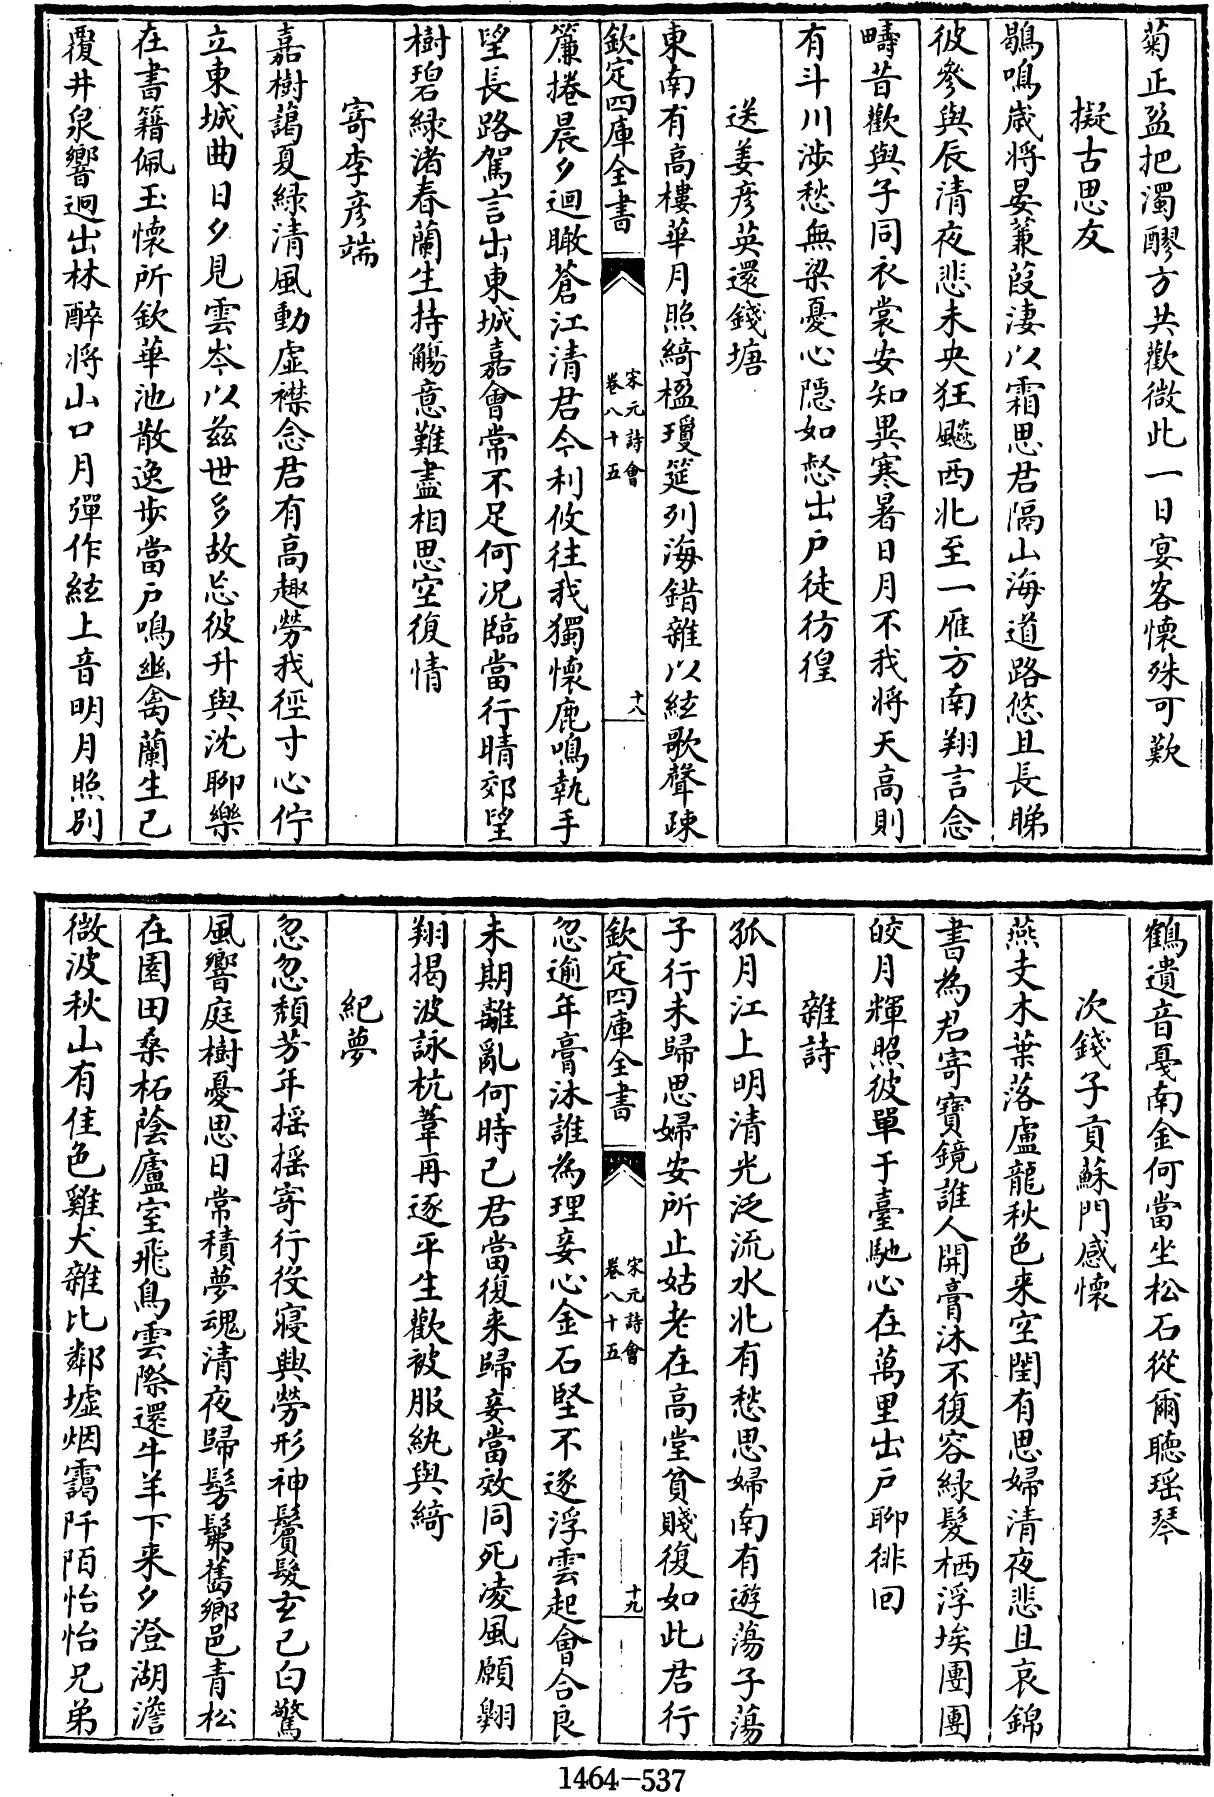 菊正盈把濁醪方共歡微此一日宴客懷殊可歎
擬古思友
鶡鳴歳將晏蒹葭凄以霜思君隔山海道路悠且長睇
彼參與辰清夜悲未央狂飈西北至一雁方南翔言念
疇昔歡與子同衣裳安知異寒暑日月不我將天高則
有斗川渉愁無梁憂心隠如惄出戶徒彷徨
送姜彦英還錢塘
東南有高樓華月照綺楹瓊筵列海錯雜以絃歌聲疎
欽定四庫全書
宋元詩會
卷八十五
十八
簾捲晨夕迴瞰蒼江清君今利攸往我獨懷鹿鳴執手
望長路駕言出東城嘉會常不足何况臨當行晴郊望
樹碧緑渚春蘭生持觴意難盡相思空復情
寄李彦端
嘉樹藹夏緑清風動虚襟念君有高趣勞我徑寸心佇
立東城曲日夕見雲岑以兹世多故忘彼升與沈聊樂
在書籍佩玉懷所欽華池散逸歩當戶鳴幽禽蘭生已
覆井泉響迥出林醉将山口月彈作絃上音明月照别
鶴遺音戛南金何當坐松石從爾聽瑶琴
次錢子貢蘇門感懷
燕支木葉落盧龍秋色来空閨有思婦清夜悲且哀錦
書為君寄寶鏡誰人開膏沐不復容緑髮栖浮埃團團
皎月輝照彼單于臺馳心在萬里出戸聊徘囘
雜詩
孤月江上明清光泛流水北有愁思婦南有遊蕩子蕩
子行未歸思婦安所止姑老在高堂貧賤復如此君行
欽定四庫全書
宋元詩會
卷八十五
十九
忽逾年膏沐誰為理妾心金石堅不逐浮雲起會合良
未期離亂何時已君當復来歸妾當效同死凌風願翱
翔揭波詠杭葦再逐平生歡被服紈與綺
紀夢
忽忽頽芳年揺揺寄行役寢興勞形神鬢髮玄已白驚
風響庭樹憂思日常積夢魂清夜歸髣髴舊鄉邑青松
在園田桑柘蔭廬室飛鳥雲際還牛羊下来夕澄湖澹
微波秋山有佳色雞犬雜比鄰墟烟靄阡陌怡怡兄弟
1464-537